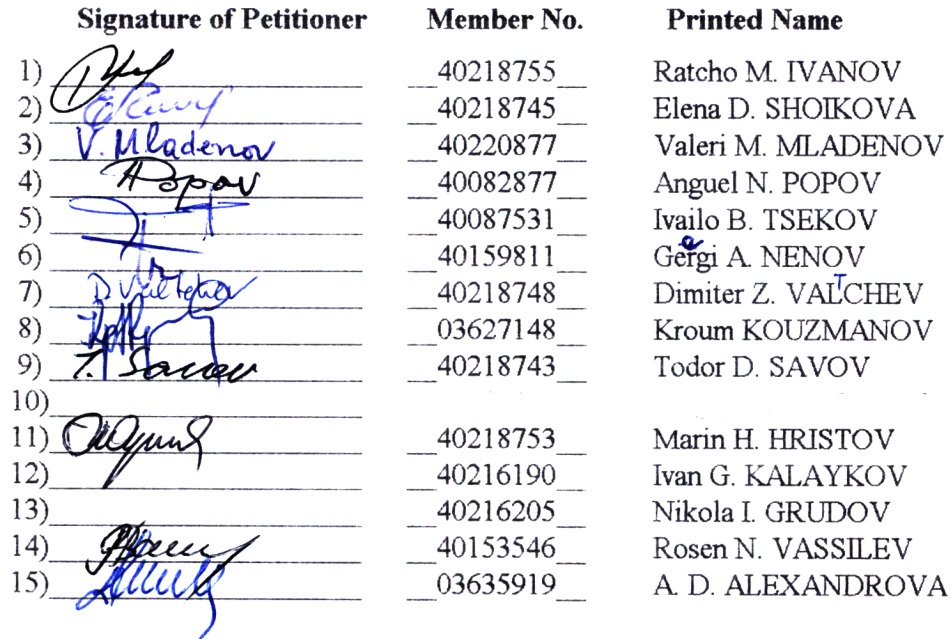 Signature of Petitioner Member No. Printed Name
1) 40218755 Ratcho M. IVANOV
2) 40218745 Elena D. SHOIKOVA
3) V. Mladenov 40220877 Valeri M. MLADENOV
4) APopov 40082877 Anguel N. POPOV
5) 40087531 Ivailo B. TSEKOV
6) 40159811 Gergi A. NENOV
7) D. Valtchev 40218748 Dimiter Z. VALTCHEV
8) 03627148 Kroum KOUZMANOV
9) T. Savov 40218743 Todor D. SAVOV
10)
11) 40218753 Marin H. HRISTOV
12) 40216190 Ivan G. KALAYKOV
13) 40216205 Nikola I. GRUDOV
14) 40153546 Rosen N. VASSILEV
15) 03635919 A. D. ALEXANDROVA